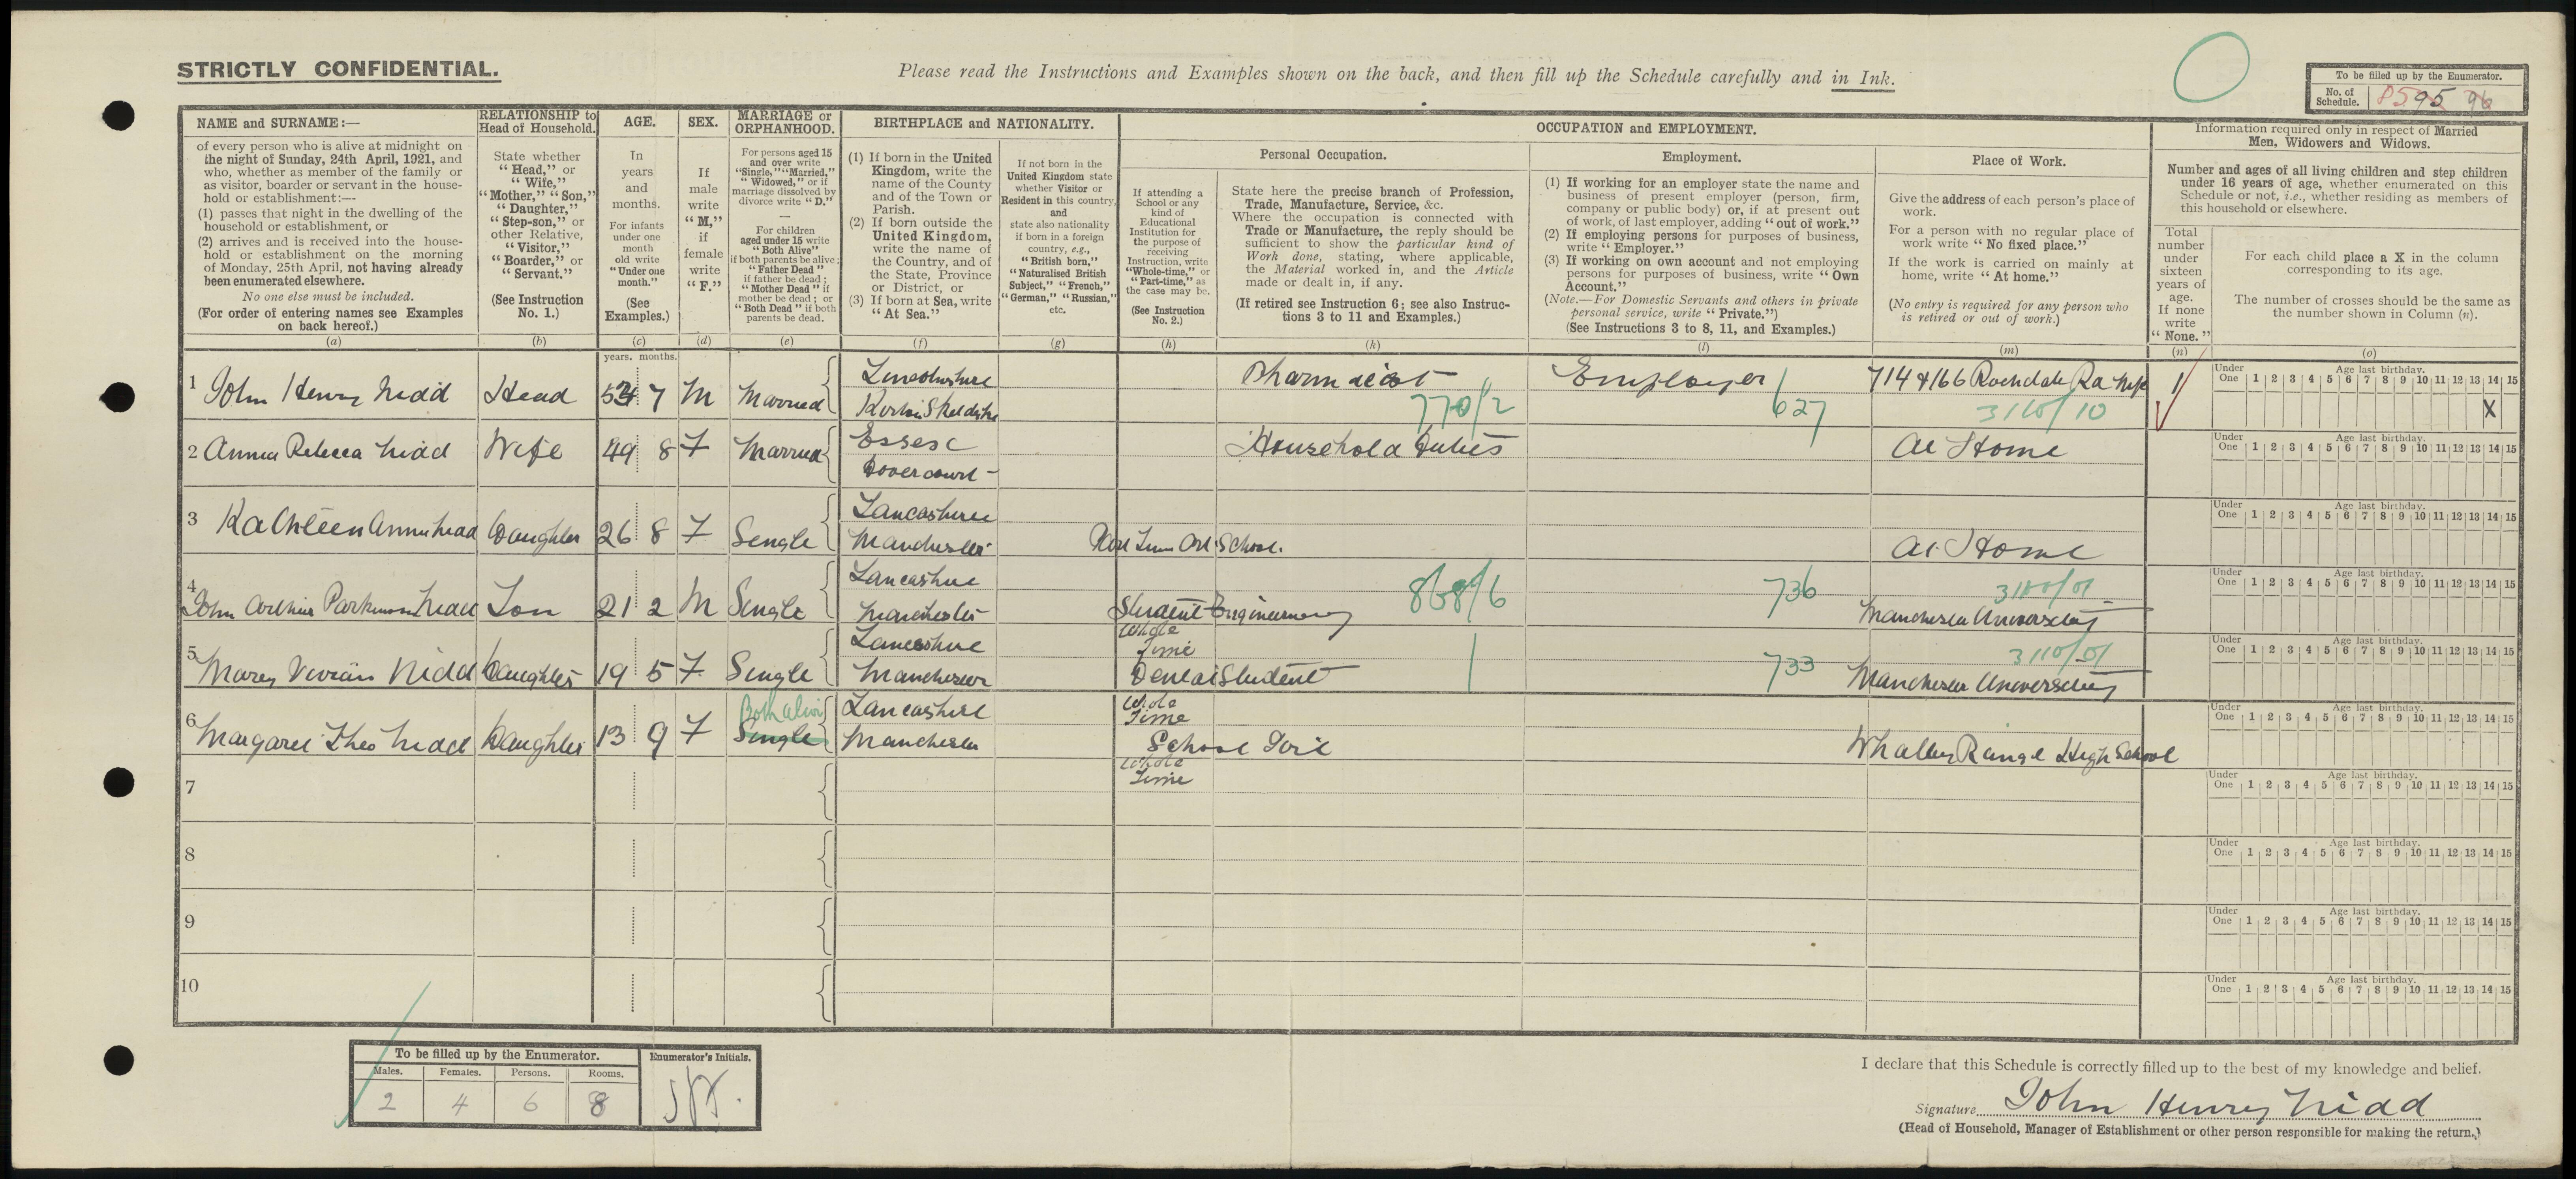 STRICTLY CONFIDENTIAL.
Please read the Instructions and Examples shown on the back, and then fill up the Schedule carefully and in Ink.
To be filled up by the Enumerator.
No. of Schedule. 95
NAME and SURNAME:—
of every person who is alive at midnight on
the night of Sunday, 24th April, 1921, and
who, whether as member of the family or
as visitor, boarder or servant in the house-
hold or establishment:—
(1) passes that night in the dwelling of the
household or establishment, or
(2) arrives and is received into the house-
hold or establishment on the morning
of Monday, 25th April, not having already
been enumerated elsewhere.
No one else must be included.
(For order of entering names see Examples
on back hereof.)
(a)
RELATIONSHIP to
Head of Household.
State whether
"Head," or
"Wife,"
"Mother," "Son,"
"Daughter,"
"Step-son," or
other Relative,
"Visitor,"
"Boarder," or
"Servant."
(See Instruction
No. 1.)
(b)
AGE.
In
years
and
months.
For infants
under one
month
old write
"Under one
month."
(See
Examples.)
(c)
SEX.
If
male
write
"M,"
if
female
write
"F."
(d)
MARRIAGE or
ORPHANHOOD.
For persons aged 15
and over write
"Single," "Married,"
"Widowed," or if
marriage dissolved by
divorce write "D."
—
For children
aged under 15 write
"Both Alive"
if both parents be alive;
"Father Dead"
if father be dead;
"Mother Dead" if
mother be dead; or
"Both Dead" if both
parents be dead.
(e)
BIRTHPLACE and NATIONALITY.
(1) If born in the United
Kingdom, write the
name of the County
and of the Town or
Parish.
(2) If born outside the
United Kingdom,
write the name of
the Country, and of
the State, Province
or District, or
(3) If born at Sea, write
"At Sea."
(f)
If not born in the
United Kingdom state
whether Visitor or
Resident in this country,
and
state also nationality
if born in a foreign
country, e.g.,
"British born,"
"Naturalised British
Subject," "French,"
"German," "Russian,"
etc.
(g)
OCCUPATION and EMPLOYMENT.
Personal Occupation.
If attending a
School or any
kind of
Educational
Institution for
the purpose of
receiving
Instruction, write
"Whole-time," or
"Part-time," as
the case may be.
(See Instruction
No. 2.)
(h)
State here the precise branch of Profession,
Trade, Manufacture, Service, &c.
Where the occupation is connected with
Trade or Manufacture, the reply should be
sufficient to show the particular kind of
Work done, stating, where applicable,
the Material worked in, and the Article
made or dealt in, if any.
(If retired see Instruction 6; see also Instruc-
tions 3 to 11 and Examples.)
(k)
Employment.
(1) If working for an employer state the name and
business of present employer (person, firm,
company or public body) or, if at present out
of work, of last employer, adding "out of work."
(2) If employing persons for purposes of business,
write "Employer."
(3) If working on own account and not employing
persons for purposes of business, write "Own
Account."
(Note.—For Domestic Servants and others in private
personal service, write "Private.")
(See Instructions 3 to 8, 11, and Examples.)
(l)
Place of Work.
Give the address of each person's place of
work.
For a person with no regular place of
work write "No fixed place."
If the work is carried on mainly at
home, write "At home."
(No entry is required for any person who
is retired or out of work.)
(m)
Information required only in respect of Married
Men, Widowers and Widows.
Number and ages of all living children and step children
under 16 years of age, whether enumerated on this
Schedule or not, i.e., whether residing as members of
this household or elsewhere.
Total
number
under
sixteen
years of
age.
If none
write
"None."
(n)
For each child place a X in the column
corresponding to its age.
The number of crosses should be the same as
the number shown in Column (n).
(o)
years. months.
1 John Henry Nidd Head 7 M Married Lincolnshire Pharmacist Employer 714 & 166 Rochdale Rd
770/2 627 3110/10
Under One 1 2 3 4 5 6 7 8 9 10 11 12 13 14 15
Age last birthday.
X
2 Annie Rebecca Nidd Wife 49 8 F Married Essex Dovercourt Household Duties At Home
Under One 1 2 3 4 5 6 7 8 9 10 11 12 13 14 15
Age last birthday.
3 Kathleen Annie Nidd Daughter 26 8 F Single Lancashire Manchester Part Time Art School. At Home
Under One 1 2 3 4 5 6 7 8 9 10 11 12 13 14 15
Age last birthday.
4 John Arthur Parkinson Nidd Son 21 2 M Single Lancashire Manchester Student Engineering Whole Time 868/6 736 Manchester University
Under One 1 2 3 4 5 6 7 8 9 10 11 12 13 14 15
Age last birthday.
5 Mary Vivian Nidd Daughter 19 5 F Single Lancashire Manchester Dental Student Whole Time 733 Manchester University
Under One 1 2 3 4 5 6 7 8 9 10 11 12 13 14 15
Age last birthday.
6 Margaret Theo Nidd Daughter 13 9 F Both alive Single Lancashire Manchester School Girl Whole Time Whalley Range High School
Under One 1 2 3 4 5 6 7 8 9 10 11 12 13 14 15
Age last birthday.
7
Under One 1 2 3 4 5 6 7 8 9 10 11 12 13 14 15
Age last birthday.
8
Under One 1 2 3 4 5 6 7 8 9 10 11 12 13 14 15
Age last birthday.
9
Under One 1 2 3 4 5 6 7 8 9 10 11 12 13 14 15
Age last birthday.
10
Under One 1 2 3 4 5 6 7 8 9 10 11 12 13 14 15
Age last birthday.
To be filled up by the Enumerator.
Males. Females. Persons. Rooms.
2 4 6 8
Enumerator's Initials.
I declare that this Schedule is correctly filled up to the best of my knowledge and belief.
Signature John Henry Nidd
(Head of Household, Manager of Establishment or other person responsible for making the return.)